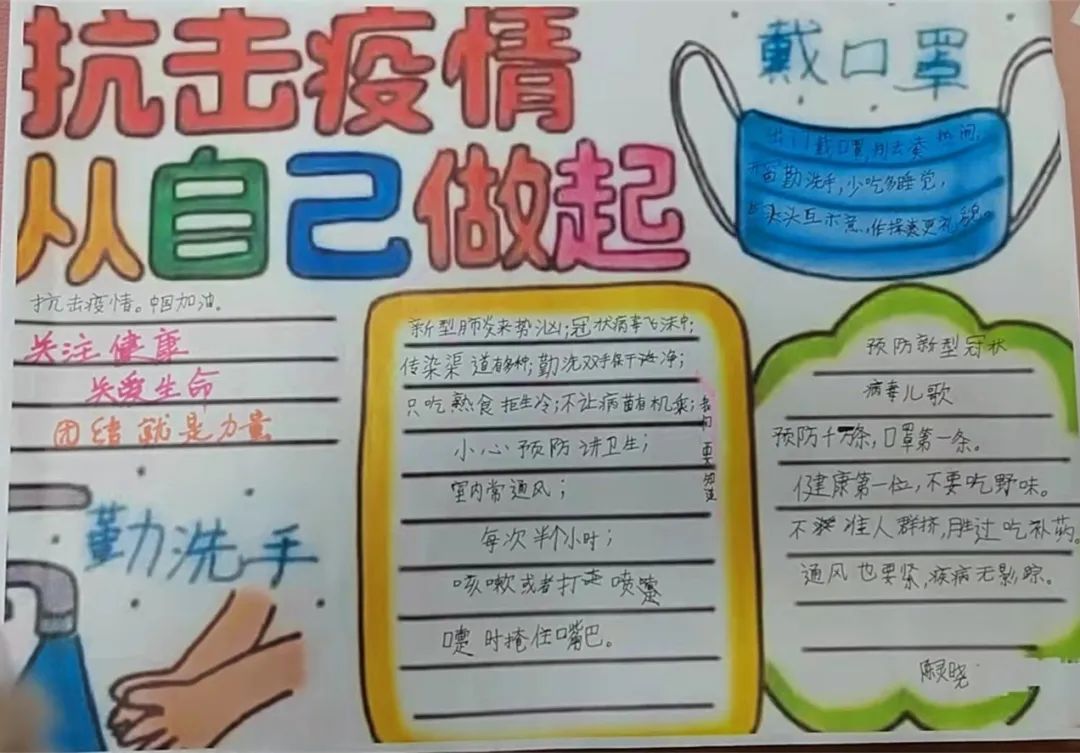 抗击疫情
从自己做起
戴口罩
出门戴口罩,别去凑热闹,
开窗勤洗手,少吃多睡觉,
点头互示意,作揖更礼貌。
抗击疫情。中国加油。
关注健康
关爱生命
团结就是力量
勤洗手
新型肺炎来势汹;冠状病毒飞沫中;
传染渠道有多种;勤洗双手保干净;
只吃熟食拒生冷;不让病菌有机乘;
我们要知道
小心预防讲卫生;
室内常通风;
每次半个小时;
咳嗽或者打喷嚏
嚏时掩住嘴巴。
预防新型冠状
病毒儿歌
预防千万条,口罩第一条。
健康第一位,不要吃野味。
不准人群挤,胜过吃补药。
通风也要紧,疾病无影踪。
陈灵晓